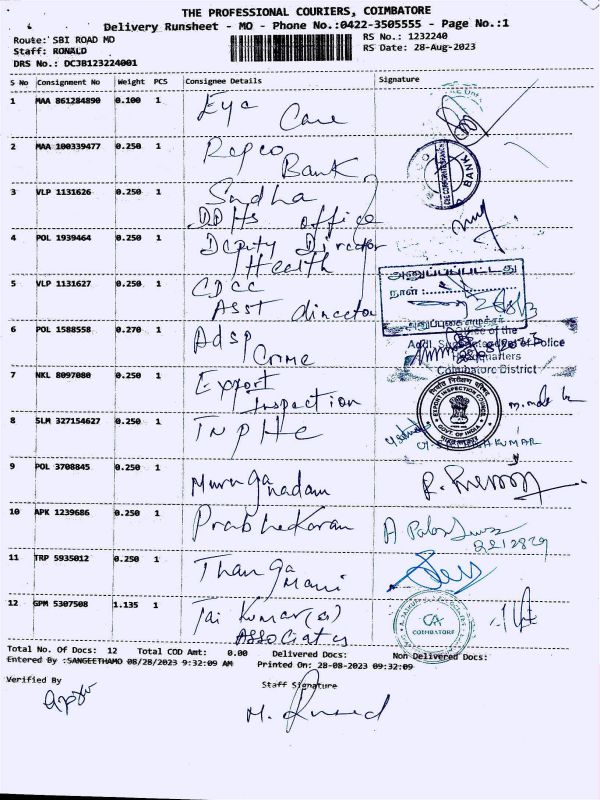 THE PROFESSIONAL COURIERS, COIMBATORE
Delivery Runsheet - MO - Phone No.:0422-3505555 - Page No.:1
Route: SBI ROAD MO
RS No.: 1232240
Staff: RONALD
RS Date: 28-Aug-2023
DRS No.: DCJB123224001
S No Consignment No Weight PCS Consignee Details Signature
1 MAA 861284890 0.100 1 Eye Care
2 MAA 100339477 0.250 1 Repco Bank
BANK
3 VLP 1131626 0.250 1 Sudha
DDHS office
4 POL 1939464 0.250 1 Deputy Director
Health
5 VLP 1131627 0.250 1 CDCC
Asst director
அனுப்பப்பட்டது
நாள் :
6 POL 1588558 0.270 1 Adsp
Crime
Office of the
Addl. Superintendent of Police
Headquarters
Coimbatore District
7 NKL 8097080 0.250 1 Export
Inspection
EXPORT INSPECTION COUNCIL
GOVT OF INDIA
8 SLM 327154627 0.250 1 TNPHC
9 POL 3708845 0.250 1 Muruganadam
10 APK 1239686 0.250 1 Prabhekaran
11 TRP 5935012 0.250 1 Thanga
Mani
12 GPM 5307508 1.135 1 Jai Kumar (s)
Associates
CA
COIMBATORE
Total No. Of Docs: 12 Total COD Amt: 0.00 Delivered Docs: Non Delivered Docs:
Entered By :SANGEETHAMO 08/28/2023 9:32:09 AM Printed On: 28-08-2023 09:32:09
Verified By
Staff Signature